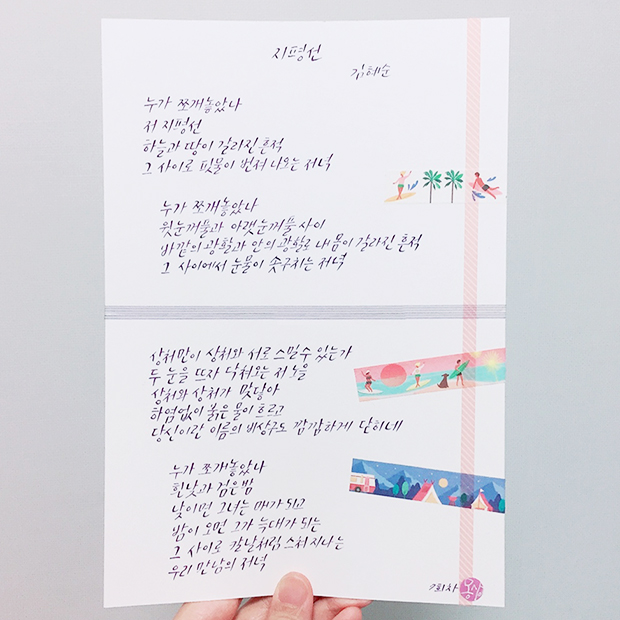 지평선
김혜순
누가 쪼개놓았나
저 지평선
하늘과 땅이 갈라진 흔적
그 사이로 핏물이 번져 나오는 저녁
누가 쪼개놓았나
윗눈꺼풀과 아랫눈꺼풀 사이
바깥의 광활과 안의 광활로 내 몸이 갈라진 흔적
그 사이에서 눈물이 솟구치는 저녁
상처만이 상처와 서로 스밀 수 있는가
두 눈을 뜨자 닥쳐오는 저 노을
상처와 상처가 맞닿아
하염없이 붉은 물이 흐르고
당신이란 이름의 비상구도 깜깜하게 닫히네
누가 쪼개놓았나
흰낮과 검은밤
낮이면 그녀는 매가 되고
밤이 오면 그가 늑대가 되는
그 사이로 칼날처럼 스쳐 지나는
우리 만남의 저녁
9회차